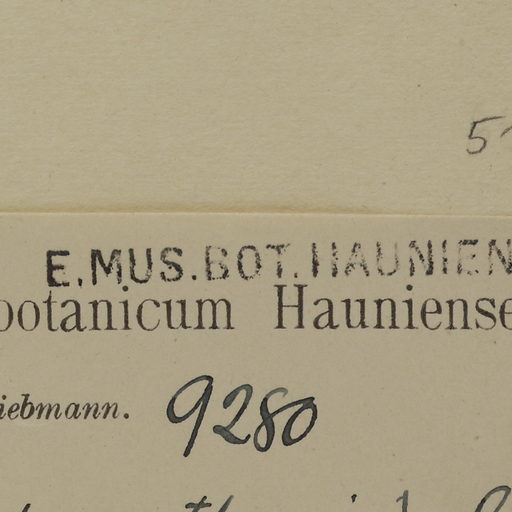 E.MUS.BOT.HAUNIEN
botanicum Hauniense
iebmann. 9280